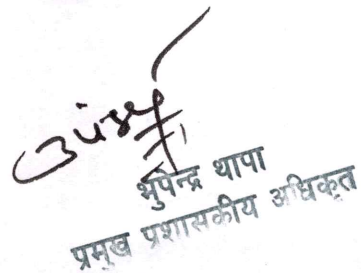 भुपेन्द्र थापा
प्रमुख प्रशासकीय अधिकृत